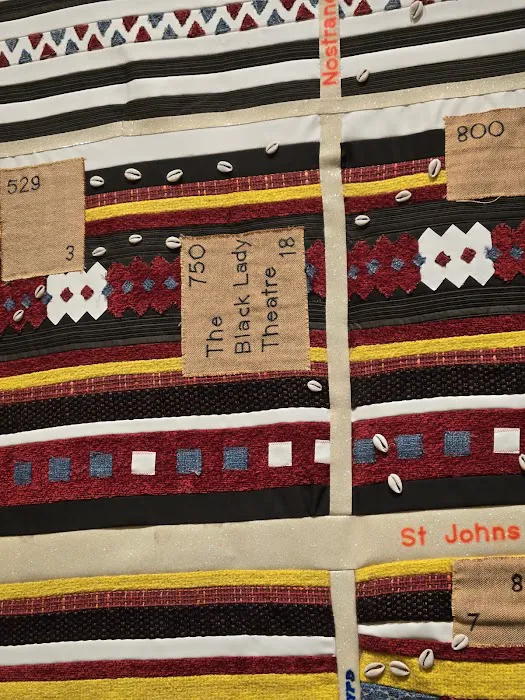 Nostrand
800
529
3
750
18
The
Black Lady
Theatre
St Johns
8
7